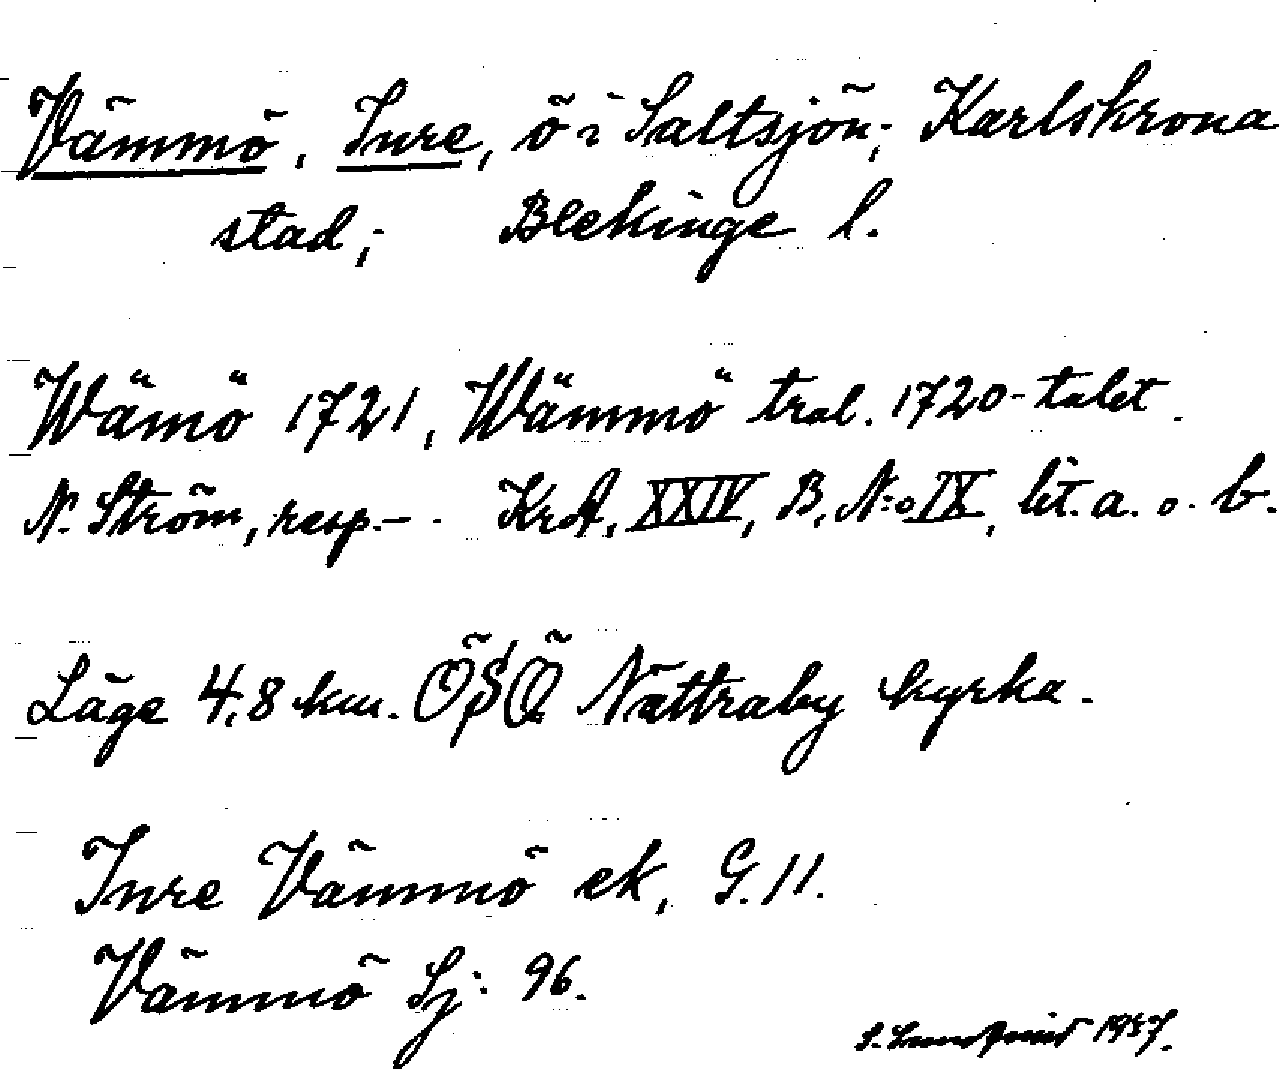 Vämmö, Inre, ö i Saltsjön; Karlskrona
stad; Blekinge l.
Wämö 1721, Wämmö trol. 1720-talet.
N. Ström, resp. - . KrA, XXIV, B, N:o IX, lit. a. o. b.
Läge 4,8 km. ÖSÖ Nättraby kyrka.
Inre Vämmö ek, G. 11.
Vämmö Sj: 96.
S. Lundqvist 1937.